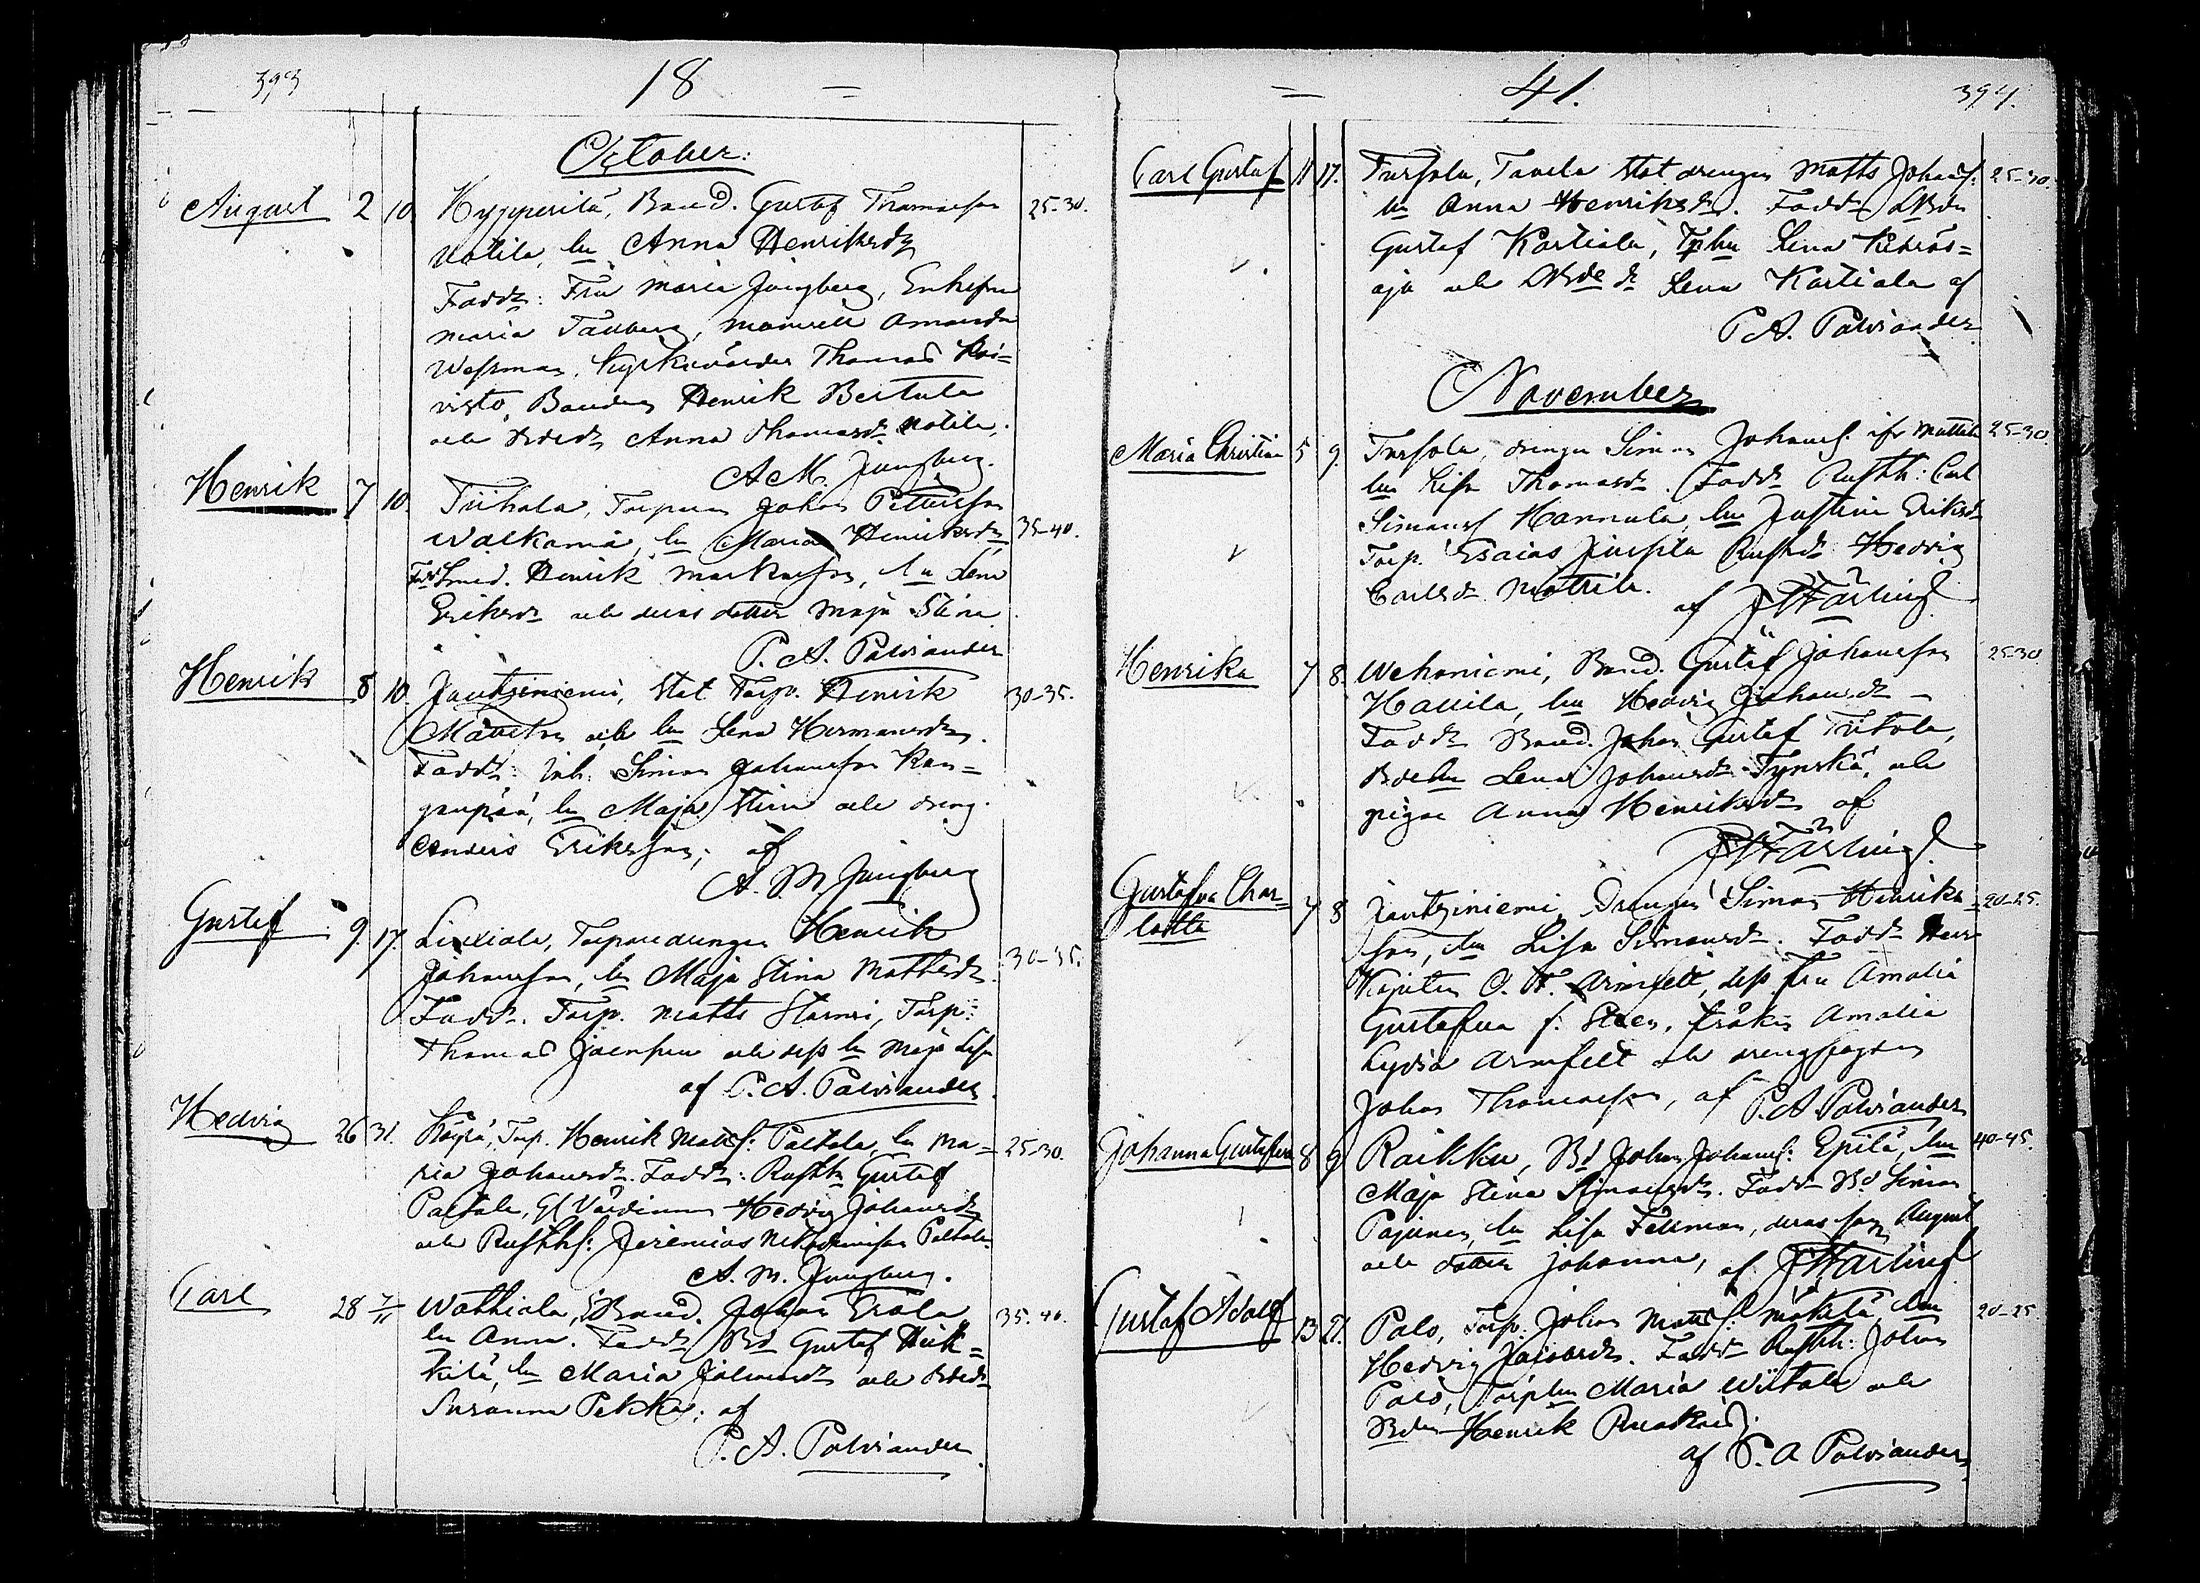 393
18 =
October.
August 2 10 Hyppärilä, Bond. Gustaf Thomasson 25-30.
Uotila, hu Anna Henriksdr
Faddr: Fru Maria Jungberg, Enkefru
Maria Tallberg, mamsell Amanda
Wessman, kyrkovärden Thomas Koi=
visto, Bonden Henrik Bertula
och Bdedr Anna Thomasdr Uotila,
A. M. Jungberg.
Henrik 7 10. Tiihala, Torparen Johan Pettersson
Walkama, hu Maria Henriksdr 35-40.
Fdr Smed. Henrik Markusson, hu Lena
Eriksdr och deras dotter Maja Stina
P. A. Palviander
Henrik 8 10. Jautziniemi, Stat Torp. Henrik 30-35.
Mattsson och hu Lena Hermansdr.
Faddr: Inh. Simon Johansson Kan=
ganpää, hu Maja Stina och dreng.
Anders Eriksson; af
A. M. Jungberg
Gustaf 9. 17. Liuxiala, Torparedrengen Henrik
Johansson, hu Maja Stina Mattsdr 30-35.
Faddr. Torp. Matts Starmi, Torp.
Thomas och dess hu Maja Lisa
af P. A. Palviander
Hedvig 26 31. Köyrä, Torp. Henrik Matss: Paltala, hu Ma= 25-30.
ria Johansdr. Faddr: Rusth. Gustaf
Paltala, Gl Värdinnan Hedvig Johansdr
och Rusthls: Jeremias Paltala.
A. M. Jungberg.
Carl 28 7/11 Wathiala, Bond. Johan Erola 35-40.
hu Anna. Faddr Bd Gustaf Heik=
kilä, hu Maria Johansdr och Bdedr
Susanna Pekka; af
P. A. Palviander.
= 41. 394.
Carl Gustaf 11 17. Tursola, Tavela Stat drengen Matts Johanss: 25-30.
hu Anna Henriksdr. Faddr Bden
Gustaf Kartiala, Tphu Lena Kiviäs=
oja och Bdedr Lena Kartiala af
P. A. Palviander
November
Maria Christina 5 9. Tursola, drengen Simon Johanss: ifr Mattila 25-30.
hu Lisa Thomasdr. Faddr Rusth: Carl
Simonss Hannula, hu Justina Eriksdr
Torp. Esaias Rusthdr Hedvig
Carlsdr Mattila. af
Henrika 7 8. Wehoniemi, Bond. Gustaf Johansson 25-30
Hallila, hu Hedvig Johansdr -
Faddr Bond. Johan Gustaf Tiitola,
Bdehu Lena Johansdr Tynskä, och
pigan Anna Henriksdr af
Gustafva Char=
lotta 7 8 Jautziniemi, Drengen Simon Henriks= 20-25.
son, hu Lisa Simonsdr. Faddr Herr
Kapiten O. H. Armfelt, dess fru Amalia
Gustafva f: Steen, fröken Amalia
Lydia Armfelt och drenggossen
Johan Thomasson, af P. A. Palviander
Johanna Gustafva 8 9 Raikku, Bd Johan Johanss: Epilä, hu 40-45.
Maja Stina Simonsdr. Faddr Bd Simon
Pajunen, hu Lisa Fellman, deras son August
och dotter Johanna, af
Gustaf Adolf 13 21. Palo, Torp: Johan Matss: Mäkilä, hu 20-25
Hedvig Jacobsdr. Faddr Rusth: Johan
Palo, Torphu Maria Wiitala och
Bden Henrik
af P. A Palviander